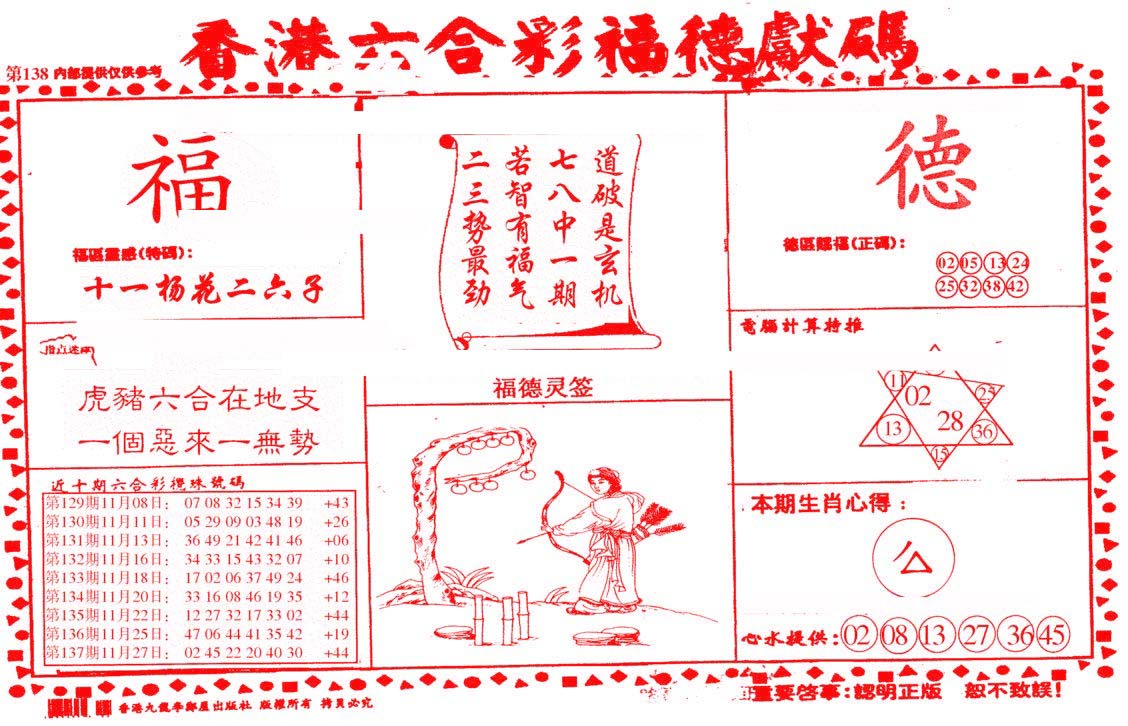 香港六合彩福德獻碼
第138 内部提供仅供参考
福
福區靈感(特碼):
十一杨花二六子
道破是玄机
七八中一期
若智有福气
二三势最劲
德
德區賜福(正碼):
02 05 13 24
25 32 38 42
電腦計算特推
11 02 25
13 28 36
15
指点迷
虎豬六合在地支
一個惡來一無勢
福德灵签
近十期六合彩攪珠號碼
第129期11月08日: 07 08 32 15 34 39 +43
第130期11月11日: 05 29 09 03 48 19 +26
第131期11月13日: 36 49 21 42 41 46 +06
第132期11月16日: 34 33 15 43 32 07 +10
第133期11月18日: 17 02 06 37 49 24 +46
第134期11月20日: 33 16 08 46 19 35 +12
第135期11月22日: 12 27 32 17 33 02 +44
第136期11月25日: 47 06 44 41 35 42 +19
第137期11月27日: 02 45 22 20 40 30 +44
本期生肖心得:
心水提供: 02 08 13 27 36 45
香港九龍李鄭屋出版社 版權所有 拷貝必究
重要啓事:認明正版 恕不致誤!